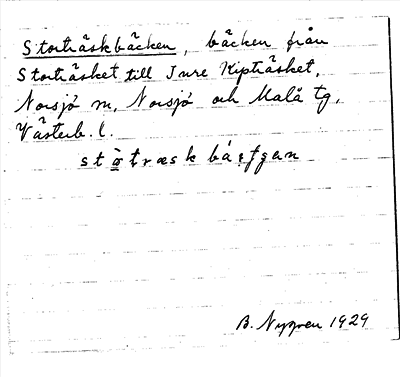 Storträskbäcken, bäcken från
Storträsket till Inre Kipträsket,
Norsjö m, Norsjö och Malå tg,
Västerb. l.
B. Nygren 1929